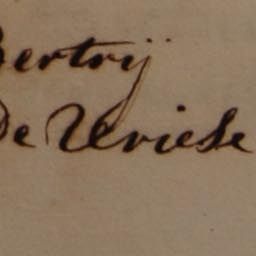 Bertrij
De Vriese